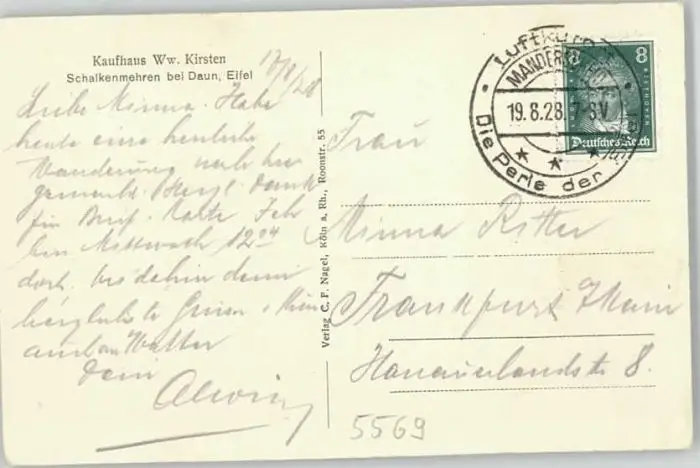 Kaufhaus Ww. Kirsten
Schalkenmehren bei Daun, Eifel
17/8/28
Liebe Minna. Habe
heute eine herrliche
Wanderung nach hier
gemacht. Bergl. Dank
für Brief. Karte
Mittwoch 12 04
dort. bis dahin
herzlichste Grüsse
auch an Walter
Dein
Alwin
Verlag C. F. Nagel, Köln a. Rh., Roonstr. 55
Luftkurort
MANDERSCHEID
19.8.28. 7-8 V
Die Perle der Eifel
8 8
Deutsches Reich
Frau
Minna Ritter
Frankfurt Main
Hanauerlandstr 8.
5569